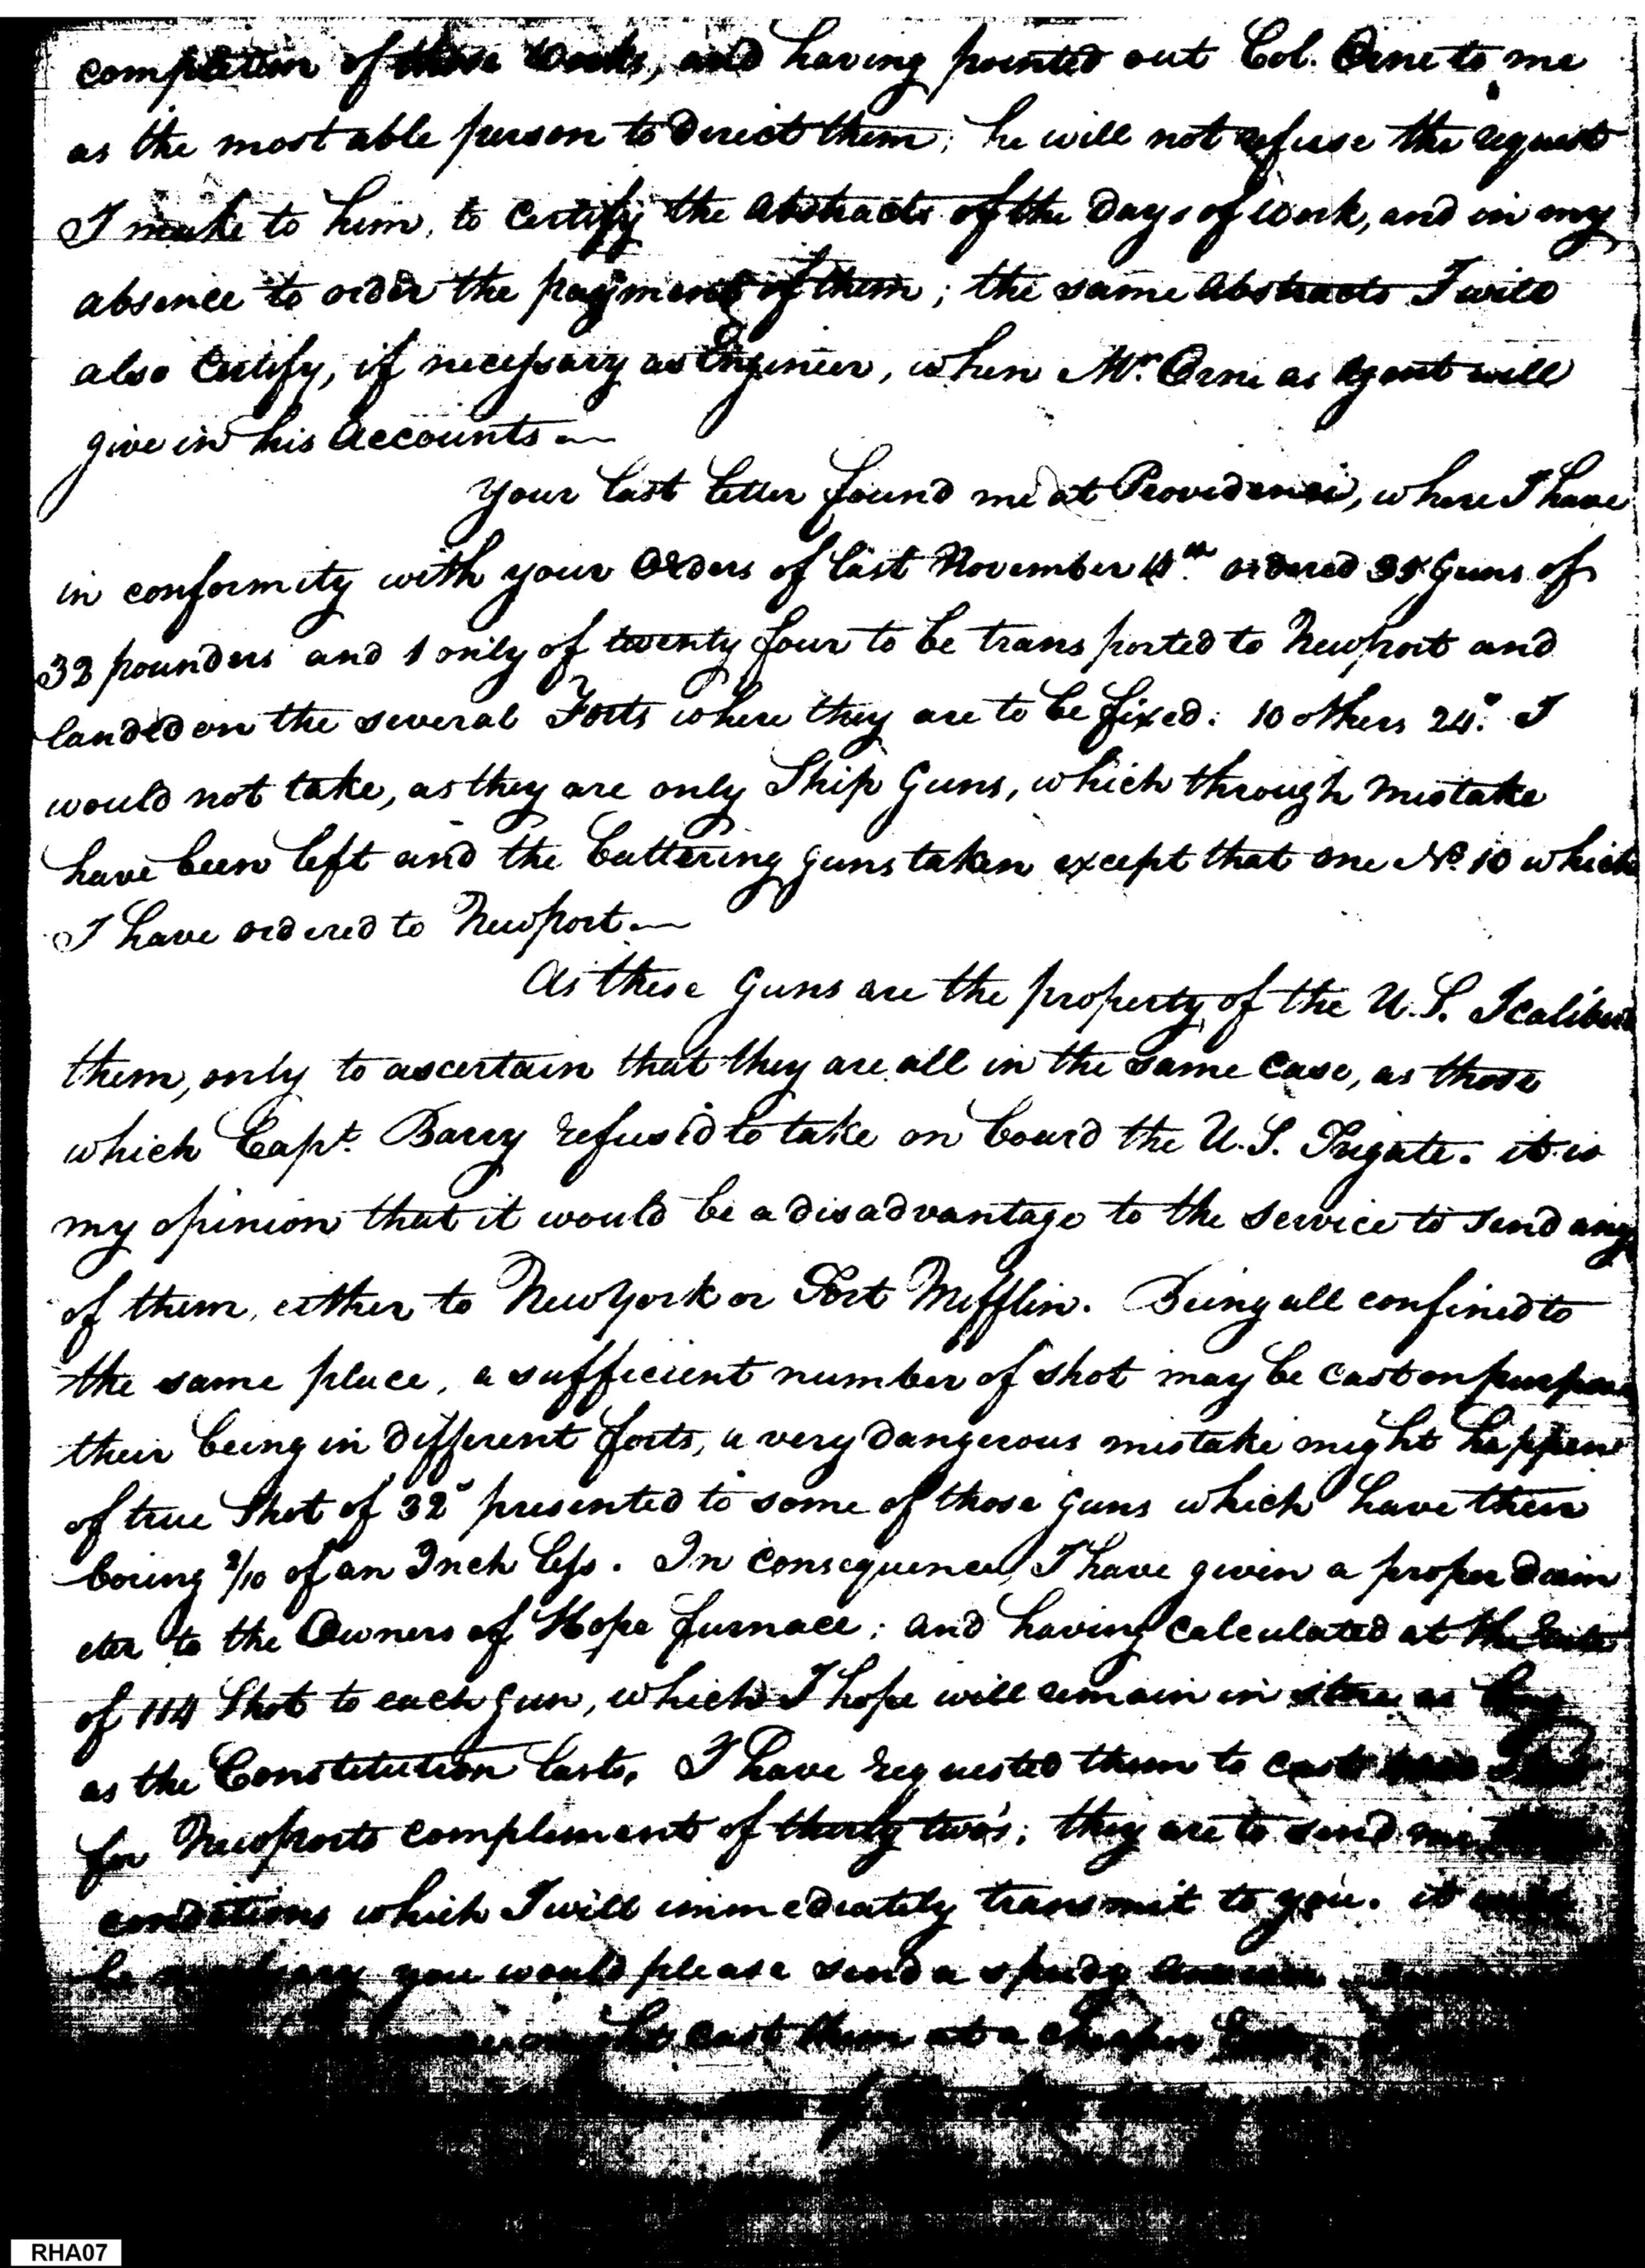 completion of those works, and having pointed out Col. Orne to me
as the most able person to Direct them; he will not refuse the request
I make to him, to certify the abstracts of the Days of work, and in my
absence to order the payment of them; the same abstracts I will
also Certify, if necessary as Engineer, when Mr. Orne as agent will
give in his accounts—
Your last letter found me at Providence, where I have
in conformity with your Orders of last November ordered 35 Guns of
32 pounders and 1 only of twenty four to be transported to Newport and
landed on the several Forts where they are to be fixed: 10 others 24.° I
would not take, as they are only Ship Guns, which through mistake
have been left and the battering guns taken except that one No. 10 which
I have ordered to Newport.—
As these Guns are the property of the U. S. I calibred
them, only to ascertain that they are all in the same Case, as those
which Capt. Barry refused to take on board the U. S. Frigate. it is
my opinion that it would be a disadvantage to the service to send any
of them, either to New York or Fort Mifflin. Being all confined to
the same place, a sufficient number of shot may be cast on purpose
their being in different forts, a very dangerous mistake might happen
of true Shot of 32° presented to some of those guns which have their
boring 2/10 of an Inch less. In consequence, I have given a proper diam
eter to the Owners of Hope furnace; and having calculated at the rate
of 114 Shot to each gun, which I hope will remain in store as long
as the Constitution lasts, I have requested them to cast
for Newports complement of thirty two's; they are to send me
conditions which I will immediately transmit to you. it
be you would please send a speedy answer
cast them at a cheaper
RHA07